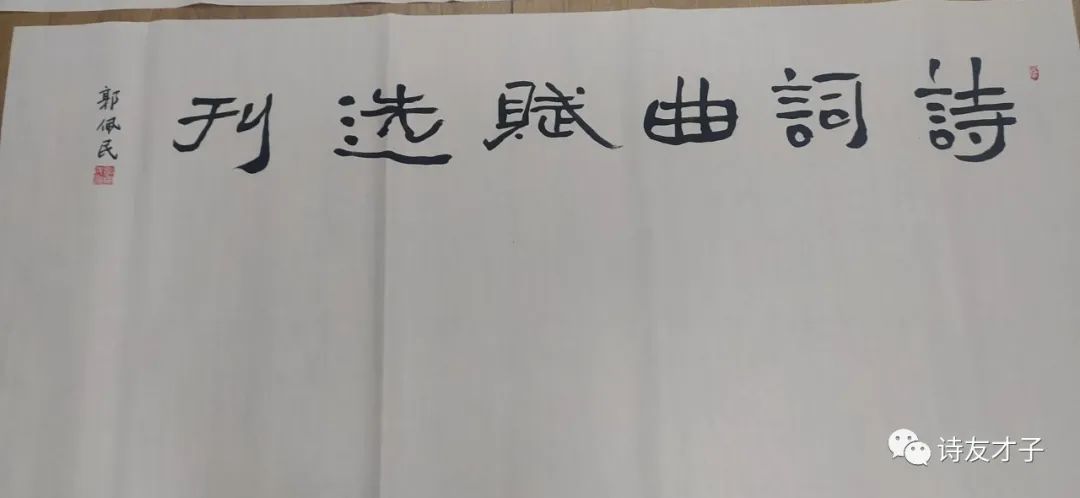 詩詞曲賦选刊
郭佩民
诗友才子